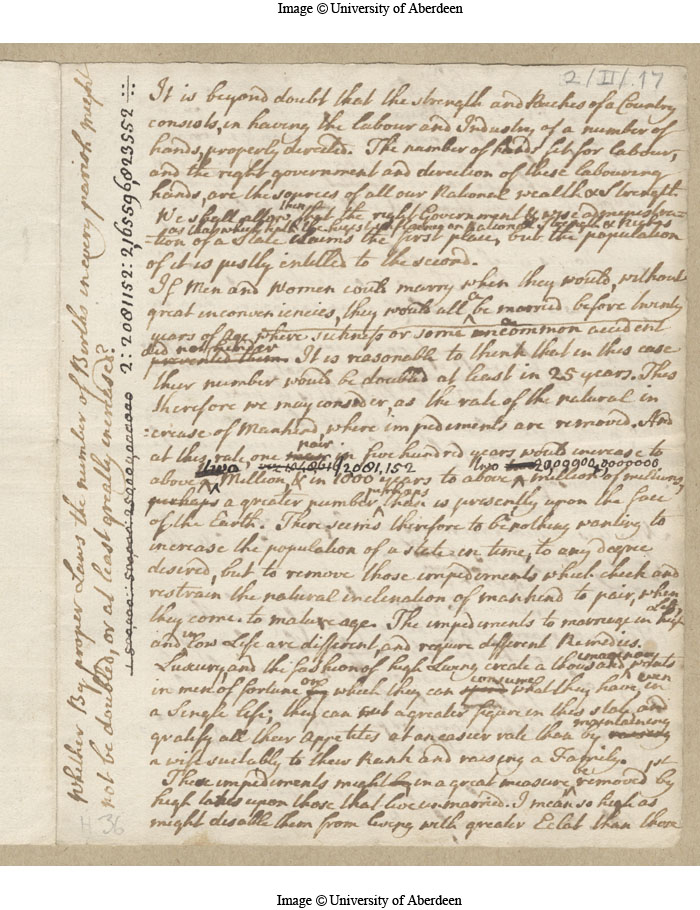 Image © University of Aberdeen
2/II/17
Whether By proper Laws the number of Births in every parish might
not be doubled, or at least greatly increased?
1:500,000::500,000:250000,000000
2:2081152:2,165596,823552
H 36
It is beyond doubt that the strength and Riches of a Country
consists, in having the labour and Industry of a number of
hands, properly directed. The number of hands fit for labour,
and the right government and direction of these labouring
hands, are the sources of all our National wealth & Strength.
We shall allow then that the right Government & wise administra=
=tion of a State claims the first place, but the population
of it is justly entitled to the second.
If Men and Women could marry when they would, without
great inconveniencies, they would all be married before twenty
years of Age where sickness or some uncommon accident
did not hinder
prevented them. It is reasonable to think that in this case
their number would be doubled at least in 25 years. This
therefore we may consider, as the rate of the natural in
=crease of Mankind where impediments are removed. And
at this rate one pair in five hundred years would increase to
two 2081,152 two 2,000000,000000
above Million, & in 1000 years to above million of millions,
perhaps a greater number perhaps than is presently upon the face
of the Earth. There seems therefore to be nothing wanting to
increase the population of a state in time, to any degree
desired, but to remove those impediments which check and
restrain the natural inclination of mankind to pair, when
they come to mature age. The impediments to marriage in high Life,
and in low Life are different, and require different Remedies.
Luxury, and the fashion of high Living create a thousand imaginary wants
in men of fortune on which they can consume what they have, even in
a Single life; they can cut a greater figure in this state and
gratify all their Appetites at an easier rate than by maintaining
a wife suitably to their Rank and raising a Family.
These impediments might in a great measure be removed by 1st
high taxes upon those that live unmarried. I mean so high as
might disable them from living with greater Eclat than those
Image © University of Aberdeen